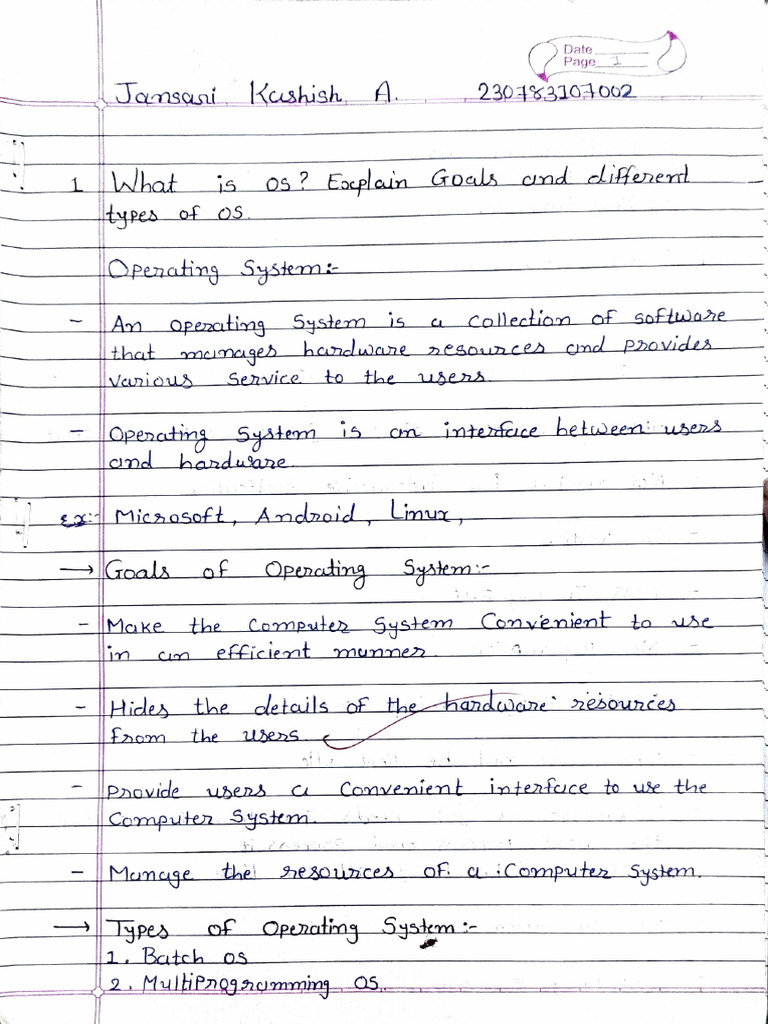 Date
Page 1
Jansari Kashish A. 230783107002
1 What is os? Explain Goals and different
types of os.
Operating System:-
- An operating System is a collection of software
that manages hardware resources and provides
various service to the users.
- Operating System is an interface between users
and hardware.
Ex:- Microsoft, Android, Linux,
→ Goals of Operating System:-
- Make the computer System Convenient to use
in an efficient manner.
- Hides the details of the hardware resources
from the users.
- provide users a convenient interface to use the
Computer System.
- Manage the resources of a Computer System.
→ Types of Operating System:-
1. Batch os
2. MultiProgramming OS.